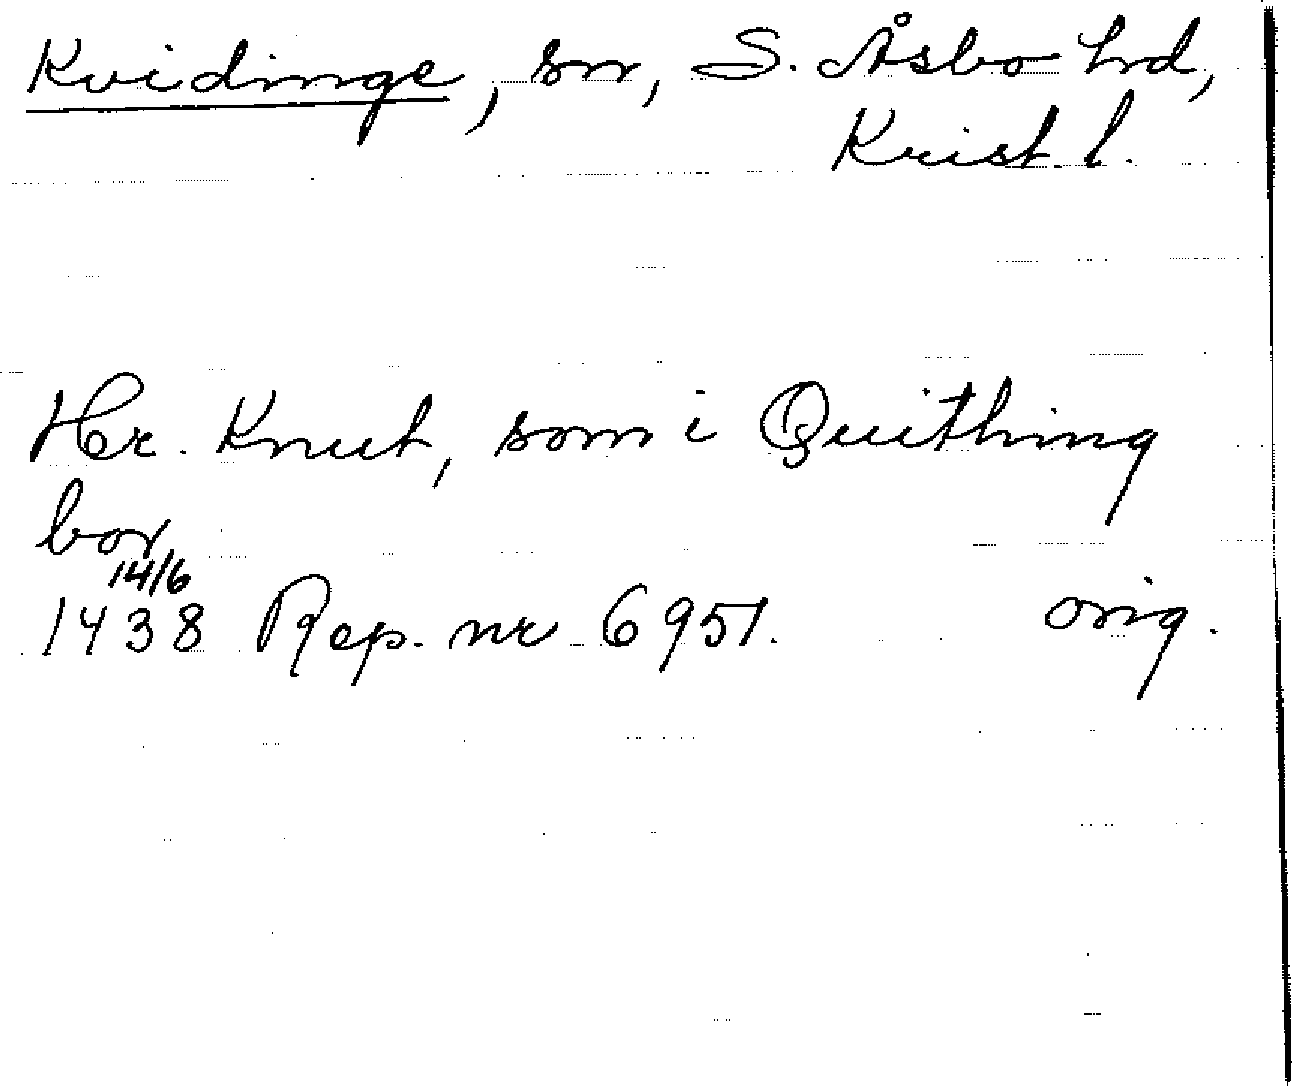 Kvidinge, sn, S. Åsbo hd,
Krist. l.
Hr. Knut, som i Quithing
bor
14/6
1438 Rep. nr 6951. orig.